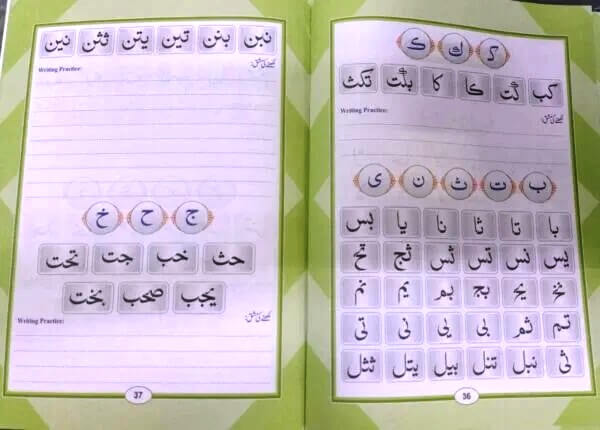 ک ك گ
کب گت کا کا بلت تکث
Writing Practice: لکھنے کی مشق:
ب ت ث ن ی
با تا ثا نا یا بس
یس نس تس ثس ثج تح
نخ یح بج بم یم نم
تم ثم بی یی نی تی
ثی نبل تنل بیل یتل ثثل
36
نبن بنن تین یتن ثثن نین
Writing Practice: لکھنے کی مشق:
ج ح خ
حث خب جت تحت
یجب صحب بخت
Writing Practice: لکھنے کی مشق:
37